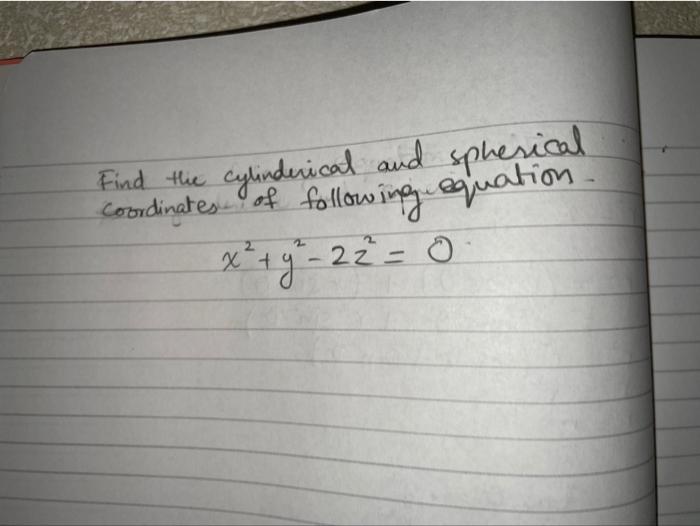 Find the cylinderical and spherical
coordinates of following equation.
x² + y² - 2z² = 0